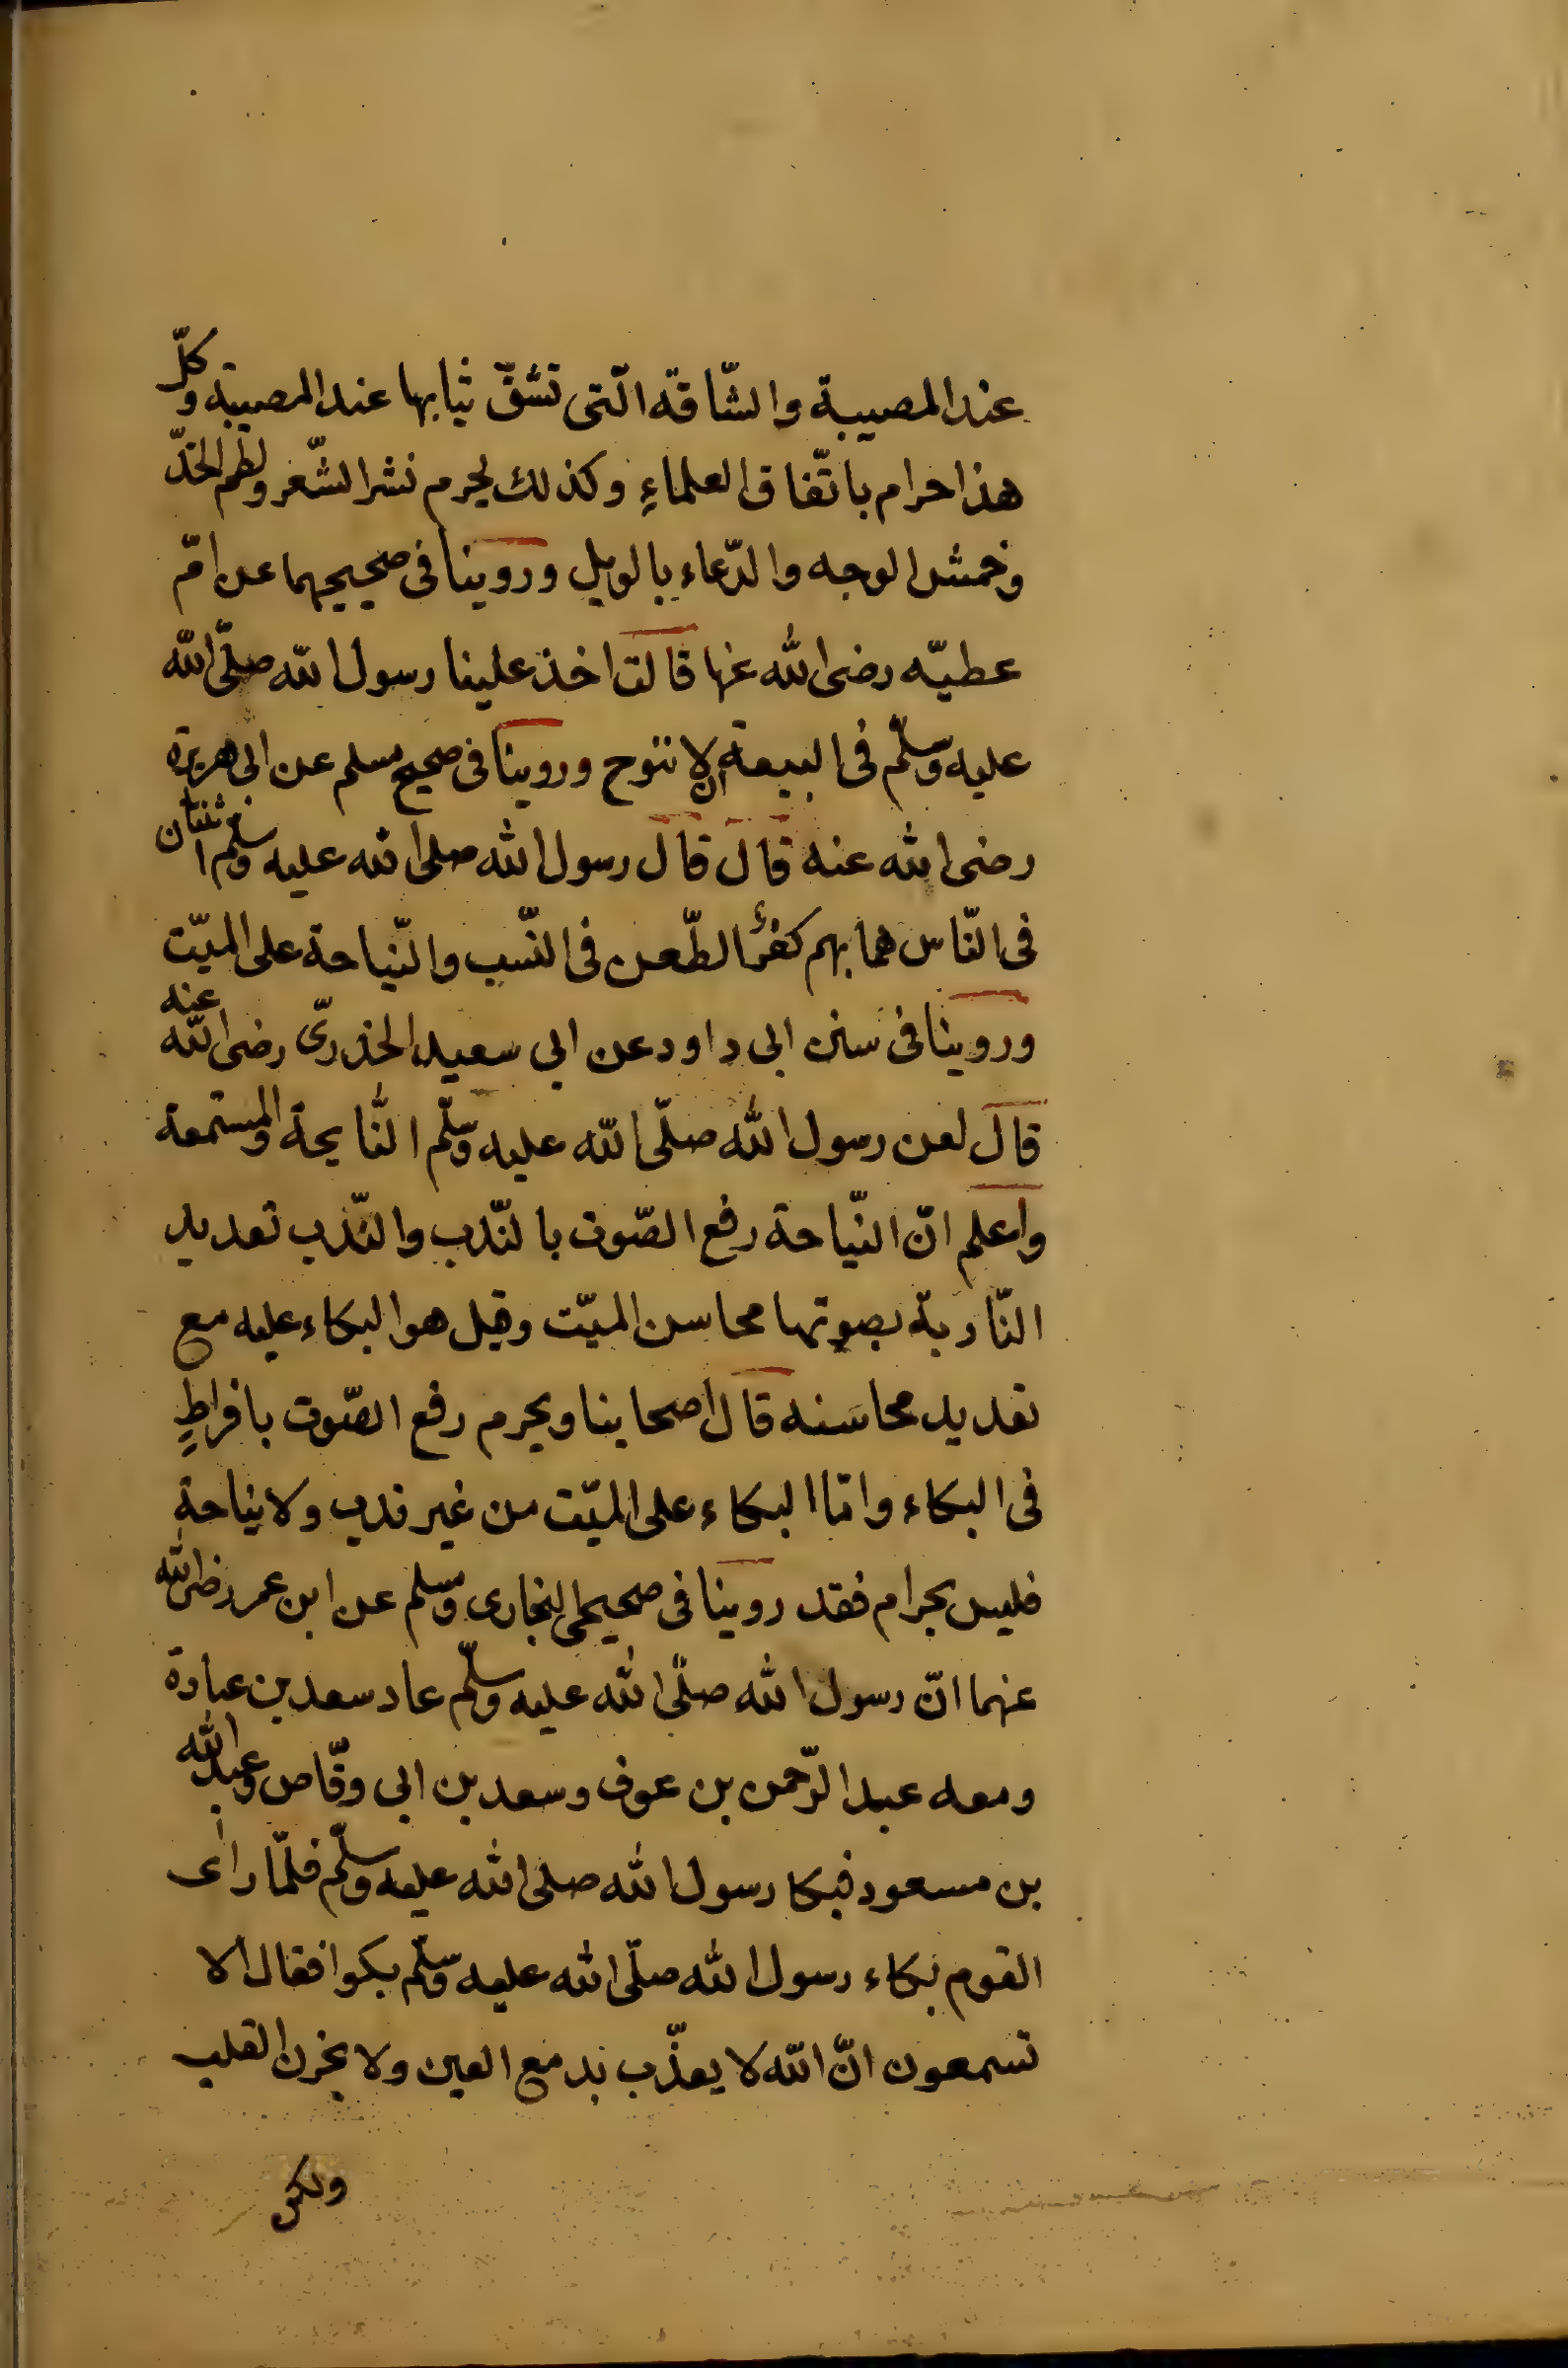 عند المصيبة والشّاقّة الّتى تشقّ ثيابها عند المصيبة وكلّ
هذا حرام باتّفاق العلماءِ وكذلك يحرم نشر الشّعر ولطم الخدّ
وخمش الوجه والدّعاء بالويل وروينا فى صحيحيهما عن امّ
عطيّه رضى الله عنها قالت اخذ علينا رسول الله صلّى الله
عليه وسلّم فى البيعة ان لا ننوح وروينا فى صحيح مسلم عن ابى هريرة
رضى الله عنه قال قال رسول الله صلى الله عليه وسلم اثنتان
فى النّاس هما بهم كفرٌ الطّعن فى النّسب والنّياحة على الميّت
وروينا فى سنن ابى داود عن ابى سعيد الخدرىّ رضى الله عنه
قال لعن رسول الله صلّى الله عليه وسلّم النّايحة والمستمعة
واعلم انّ النّياحة رفع الصّوت بالنّدب والنّدب تعديد
النّادبة بصوتها محاسن الميّت وقيل هو البكاء عليه مع
تعديد محاسَنه قال اصحابنا ويحرم رفع الصّوت بافراطٍ
فى البكاء وامّا البكاء على الميّت من غير ندب ولا نياحةٍ
فليس بحرام فقد روينا فى صحيحى البخارى ومسلم عن ابن عمر رضى الله
عنهما انّ رسول الله صلّى الله عليه وسلّم عاد سعد بن عبادة
ومعه عبد الرّحمن بن عوف وسعد بن ابى وقّاص وعبد الله
بن مسعود فبكا رسول الله صلى الله عليه وسلّم فلمّا راى
القوم بكاء رسول الله صلّى الله عليه وسلّم بكوا فقال الا
تسمعون انّ الله لا يعذّب بدمع العين ولا بحزن القلب
ولكن